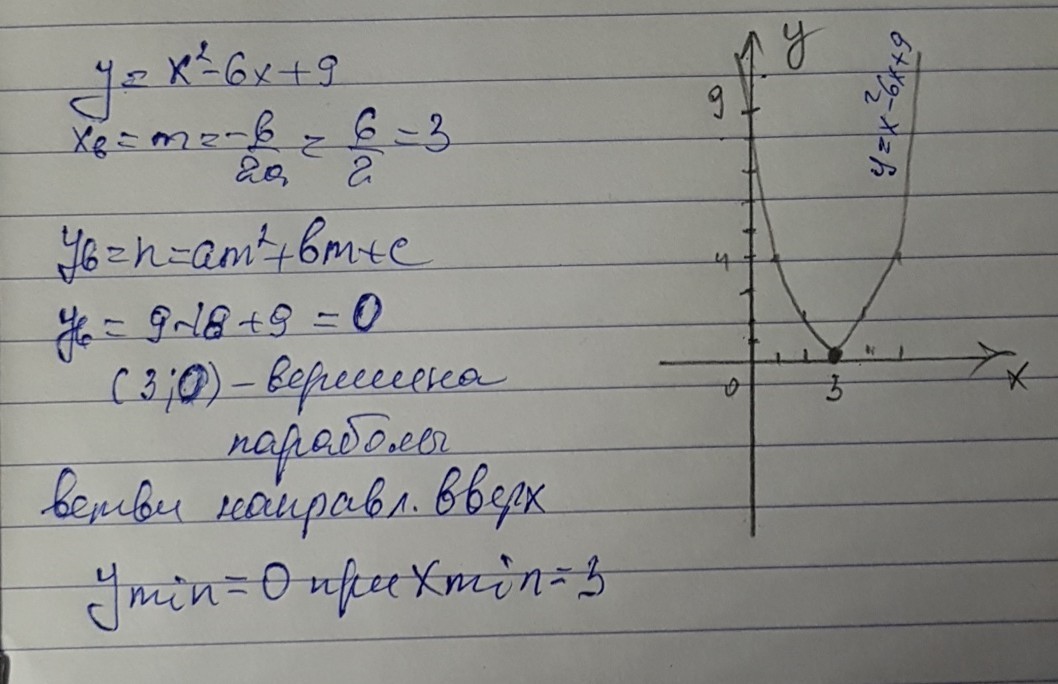 y = x² - 6x + 9
xв = m = -в/2a = 6/2 = 3
yв = n = am² + вm + c
yв = 9 - 18 + 9 = 0
(3;0) - вершина
параболы
ветви направл. вверх
y min = 0 при x min = 3
y
9
y = x² - 6x + 9
4
0
3
x